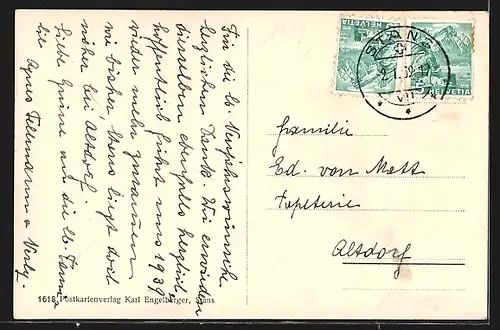 Für die lb. Neujahrswünsche
herzlichen Dank. Wir erwidern
dieselben ebenfalls herzlich,
hoffentlich führt uns 1939
wieder mehr zusammen
wie bisher, Stans liegt doch
näher bei Altdorf.
Liebe Grüsse an die lb. Tanna
Agnes
1618 Postkartenverlag Karl Engelberger, Stans
HELVETIA
HELVETIA
STANS
Familie
Ed. von Matt
Papeterie
Altdorf